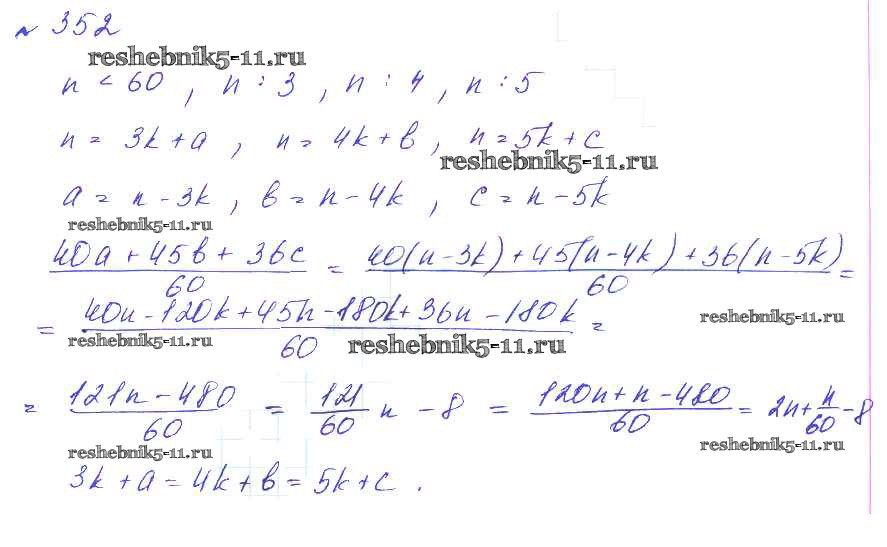 № 352
reshebnik5-11.ru
n < 60 , n : 3 , n : 4 , n : 5
n = 3k + a , n = 4k + b , n = 5k + c
reshebnik5-11.ru
a = n - 3k , b = n - 4k , c = n - 5k
reshebnik5-11.ru
(40a + 45b + 36c)/60 = (40(n - 3k) + 45(n - 4k) + 36(n - 5k))/60 =
= (40n - 120k + 45n - 180k + 36n - 180k)/60 =
reshebnik5-11.ru
reshebnik5-11.ru
reshebnik5-11.ru
= (121n - 480)/60 = 121/60 n - 8 = (120n + n - 480)/60 = 2n + n/60 - 8
reshebnik5-11.ru
reshebnik5-11.ru
3k + a = 4k + b = 5k + c .